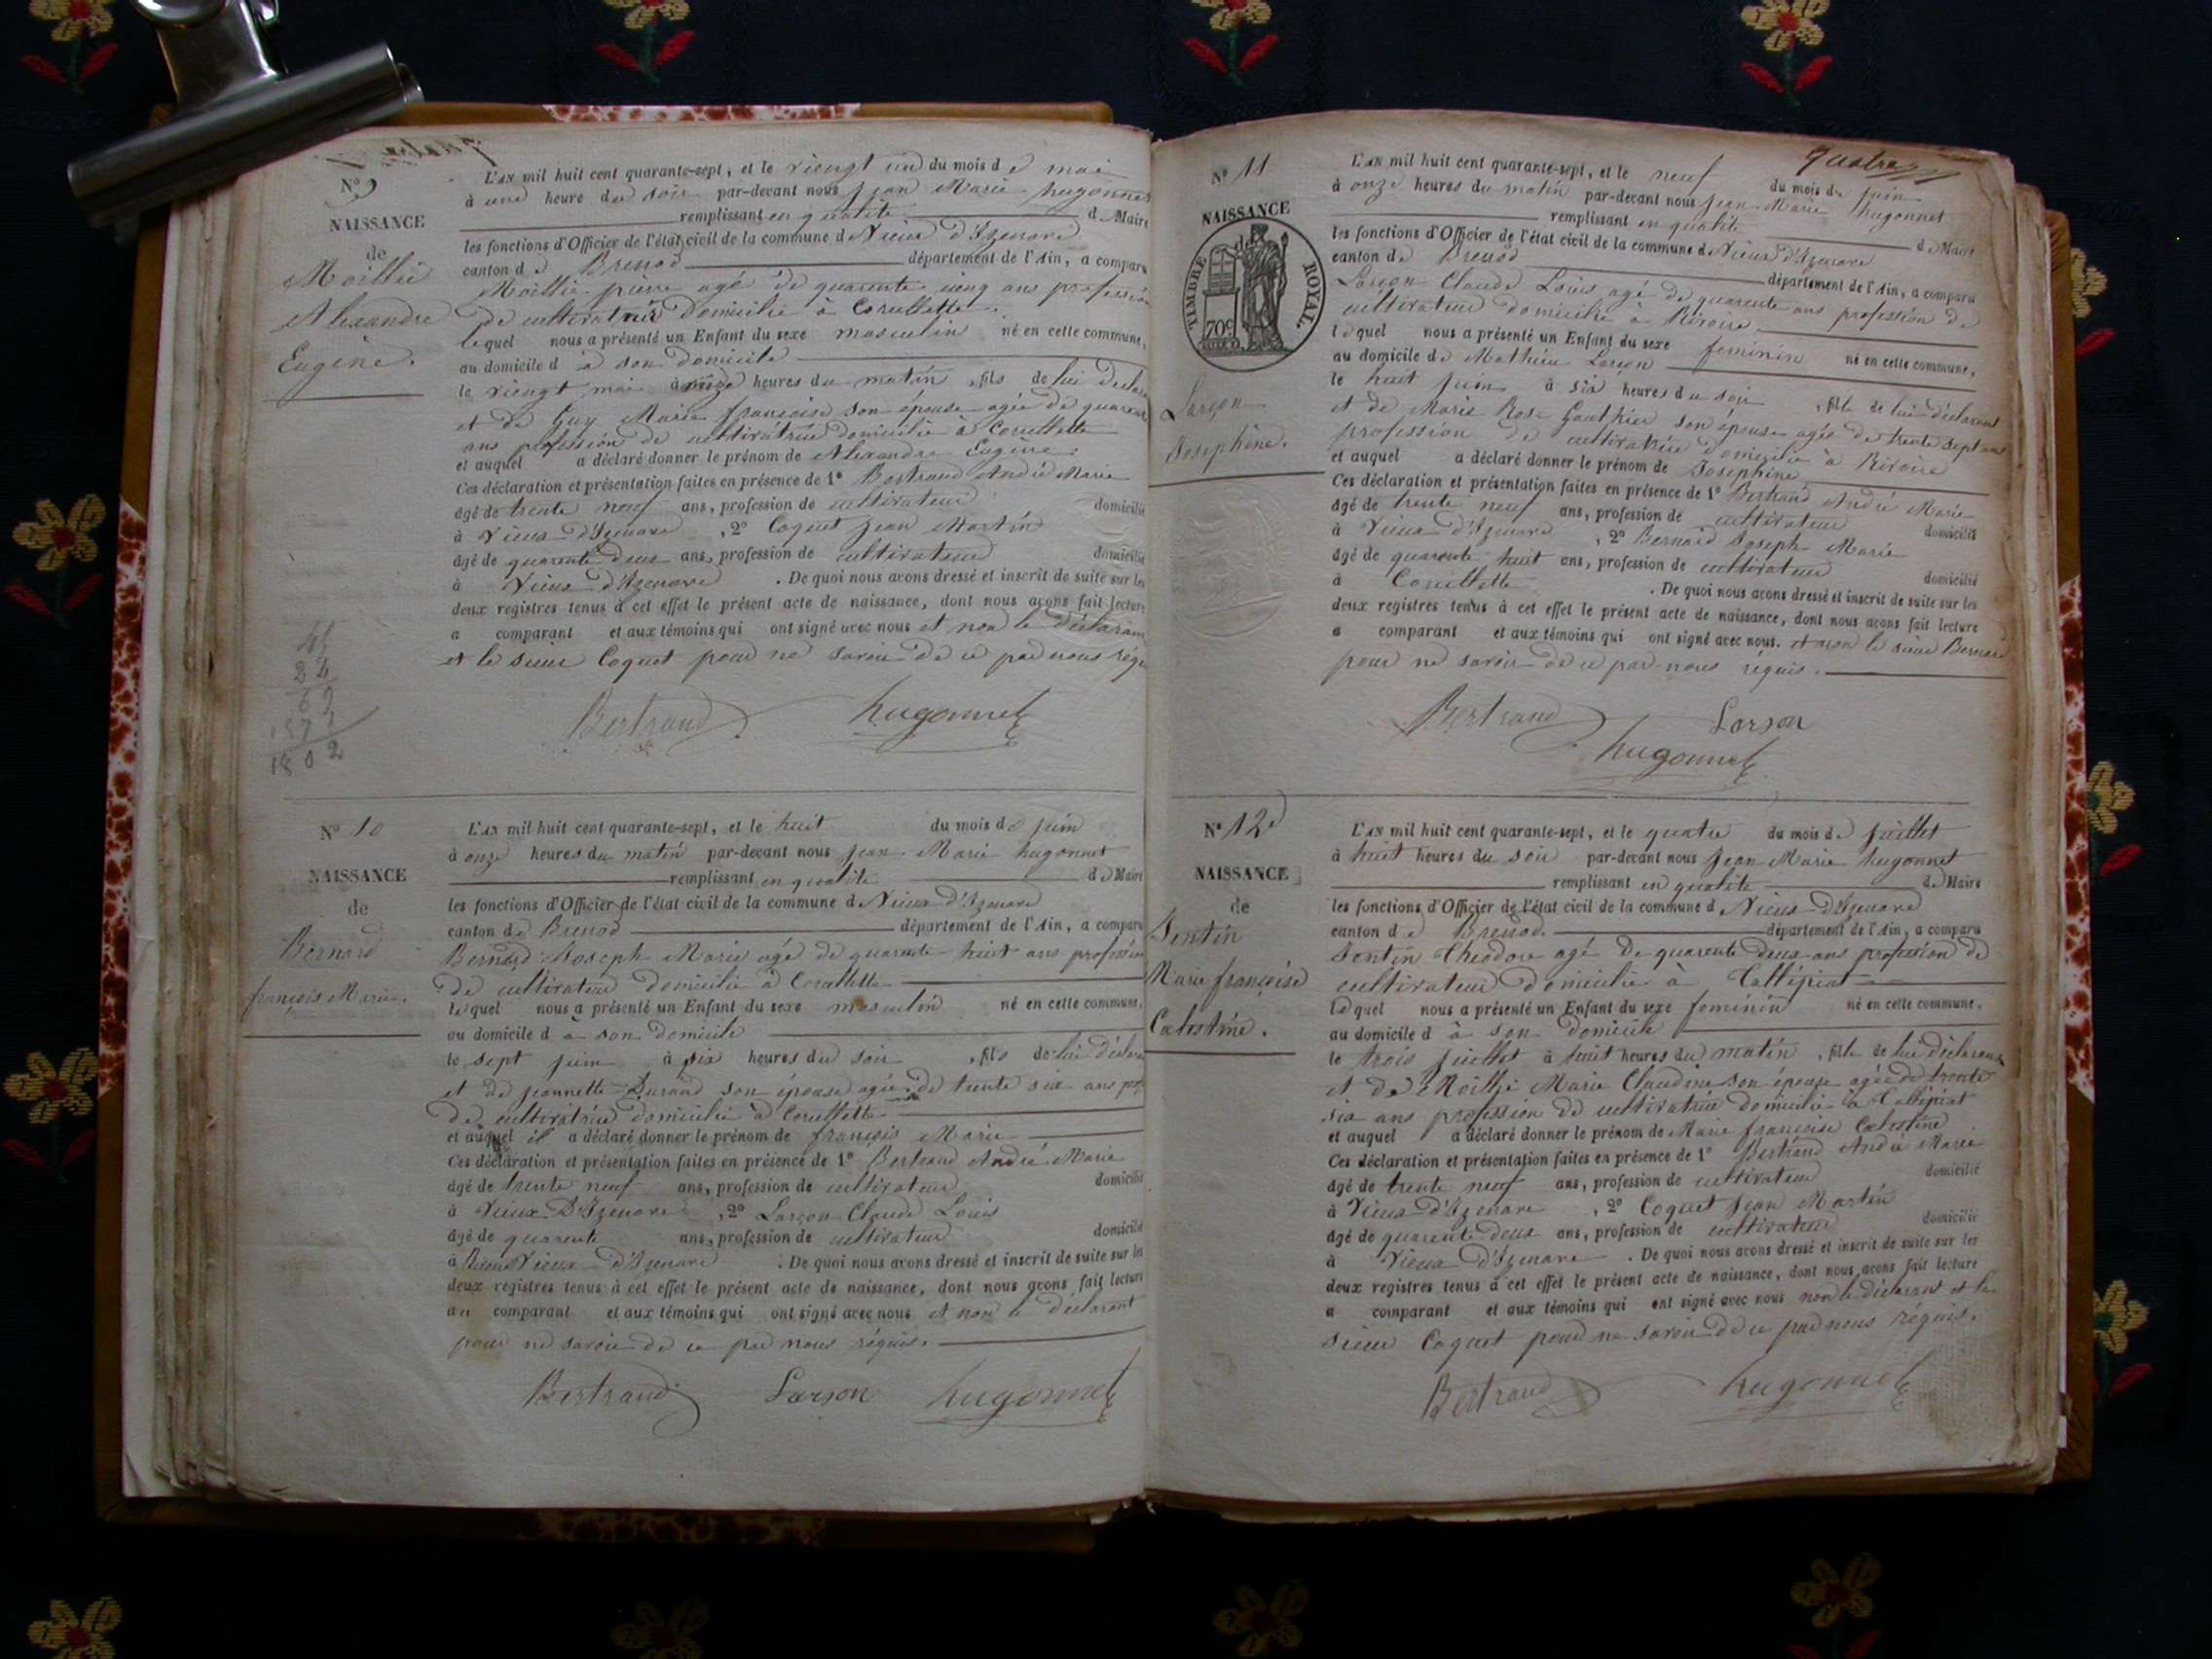 N° 9
NAISSANCE
de
Moillie
Alexandre
Eugène.
L'AN mil huit cent quarante-sept, et le viengt un du mois de mai
à une heure du soir par-devant nous jean Marie hugonnet
remplissant en qualité de Maire
les fonctions d'Officier de l'état civil de la commune d Vieux d'Izenave
canton de Brenod département de l'Ain, a comparu
Moillie pierre agé de quarente cienq ans profession
de cultivateur domicilié à Corcellette
lequel nous a présenté un Enfant du sexe masculin né en cette commune,
au domicile d à son domicile
le viengt mai à onze heures du matin, fils de lui déclarant
et de Guy Marie françoise son épouse agée de quarente
ans profession de cultivatrice domicilié à Corcellette
et auquel a déclaré donner le prénom de Alexandre Eugène
Ces déclaration et présentation faites en présence de 1° Bertrand André Marie
âgé de trente neuf ans, profession de cultivateur domicilié
à Vieux d'Izenave, 2° Coquet Jean Martin
âgé de quarente deux ans, profession de cultivateur domicilié
à Vieux d'Izenave. De quoi nous avons dressé et inscrit de suite sur les
deux registres tenus à cet effet le présent acte de naissance, dont nous avons fait lecture
a comparant et aux témoins qui ont signé avec nous et non le déclarant
et le sieur Coquet pour ne savoir de ce par nous réqu
Bertrand hugonnet
1802
N° 10
NAISSANCE
de
Bernard
françois Marie.
L'AN mil huit cent quarante-sept, et le huit du mois de juin
à onze heures du matin par-devant nous jean Marie hugonnet
remplissant en qualité de Maire
les fonctions d'Officier de l'état civil de la commune d Vieux d'Izenave
canton de Brenod département de l'Ain, a comparu
Bernard Joseph Marie agé de quarante huit ans profession
de cultivateur domicilié à Corcellette
lequel nous a présenté un Enfant du sexe masculin né en cette commune,
au domicile d à son domicile
le sept juin à six heures du soir, fils de lui déclarant
et de jeannette Durand son épouse agée de trente six ans pro
de cultivatrice domicilié à Corcellette
et auquel il a déclaré donner le prénom de françois Marie
Ces déclaration et présentation faites en présence de 1° Bertrand André Marie
âgé de trente neuf ans, profession de cultivateur domicilié
à Vieux D'Izenave, 2° Larçon Claude Louis
âgé de quarente ans, profession de cultivateur domicilié
à Vieux d'Izenave. De quoi nous avons dressé et inscrit de suite sur les
deux registres tenus à cet effet le présent acte de naissance, dont nous avons fait lecture
au comparant et aux témoins qui ont signé avec nous et non le déclarant
pour ne savoir de ce par nous réquis.
Bertrand Larson hugonnet
quatre
N° 11
NAISSANCE
de
TIMBRE ROYAL.
70c
Larçon
Josephine.
L'AN mil huit cent quarante-sept, et le neuf du mois de juin
à onze heures du matin par-devant nous jean Marie hugonnet
remplissant en qualité de Maire
les fonctions d'Officier de l'état civil de la commune de Vieux d'Izenave
canton de Brenod département de l'Ain, a comparu
Larçon Claude Louis agé de quarente ans profession de
cultivateur domicilié à Rivoire
lequel nous a présenté un Enfant du sexe feminin né en cette commune,
au domicile de Mathieu Larçon
le huit juin à six heures du soir, fille de lui déclarant
et de Marie Rose Gauthier son épouse agée de trente sept ans
profession de cultivatrice domicilié à Rivoire
et auquel a déclaré donner le prénom de Josephine
Ces déclaration et présentation faites en présence de 1° Bertrand André Marie
âgé de trente neuf ans, profession de cultivateur domicilié
à Vieux d'Izenave, 2° Bernard Joseph Marie
âgé de quarente huit ans, profession de cultivateur domicilié
à Corcellette. De quoi nous avons dressé et inscrit de suite sur les
deux registres tenus à cet effet le présent acte de naissance, dont nous avons fait lecture
a comparant et aux témoins qui ont signé avec nous. et non le sieur Bernard
pour ne savoir de ce par nous réquis.
Bertrand Larson
hugonnet
N° 12
NAISSANCE
de
Sentin
Marie françoise
Celestine.
L'AN mil huit cent quarante-sept, et le quatre du mois de juillet
à huit heures du soir par-devant nous Jean Marie hugonnet
remplissant en qualité de Maire
les fonctions d'Officier de l'état civil de la commune d Vieux d'Izenave
canton de Brenod département de l'Ain, a comparu
Sentin Théodore agé de quarente deux ans profession de
cultivateur domicilié à
lequel nous a présenté un Enfant du sexe feminin né en cette commune,
au domicile d à son domicile
le trois juillet à huit heures du matin, fille de lui déclarant
et de Moillie Marie Claudine son épouse agée de trente
six ans profession de cultivatrice domicilié à
et auquel a déclaré donner le prénom de Marie françoise Celestine
Ces déclaration et présentation faites en présence de 1° Bertrand André Marie
âgé de trente neuf ans, profession de cultivateur domicilié
à Vieux d'Izenave, 2° Coquet Jean Martin
âgé de quarente deux ans, profession de cultivateur domicilié
à Vieux d'Izenave. De quoi nous avons dressé et inscrit de suite sur les
deux registres tenus à cet effet le présent acte de naissance, dont nous avons fait lecture
a comparant et aux témoins qui ont signé avec nous non le déclarant et le
sieur Coquet pour ne savoir de ce par nous réquis.
Bertrand hugonnet